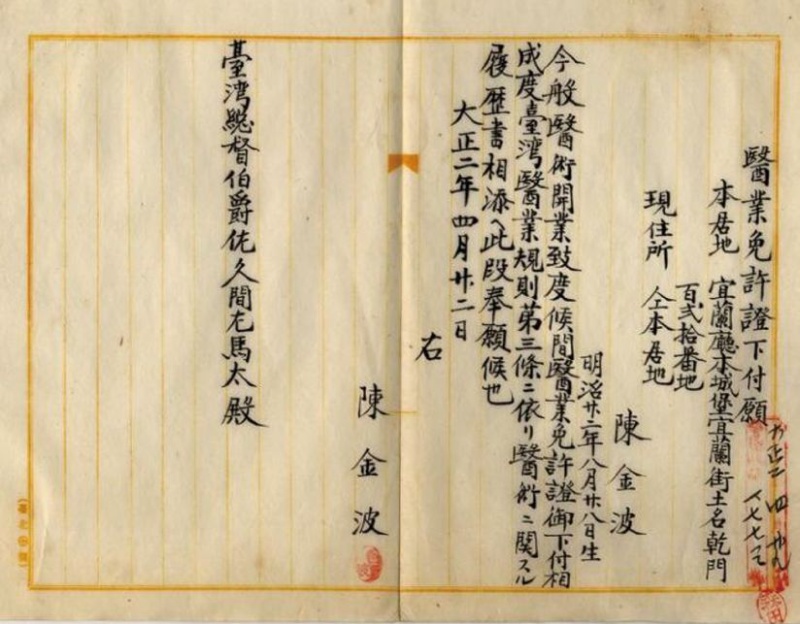 醫業免許證下付願
本居地 宜蘭廳本城堡宜蘭街土名乾門
百弍拾番地
現住所 仝本居地
陳金波
明治廿二年八月廿八日生
今般醫術開業致度候間醫業免許證御下付相
成度臺湾醫業規則第三條ニ依リ醫術ニ関スル
履歴書相添ヘ此段奉願候也
大正二年四月廿二日
右
陳金波
臺湾総督伯爵佐久間左馬太殿